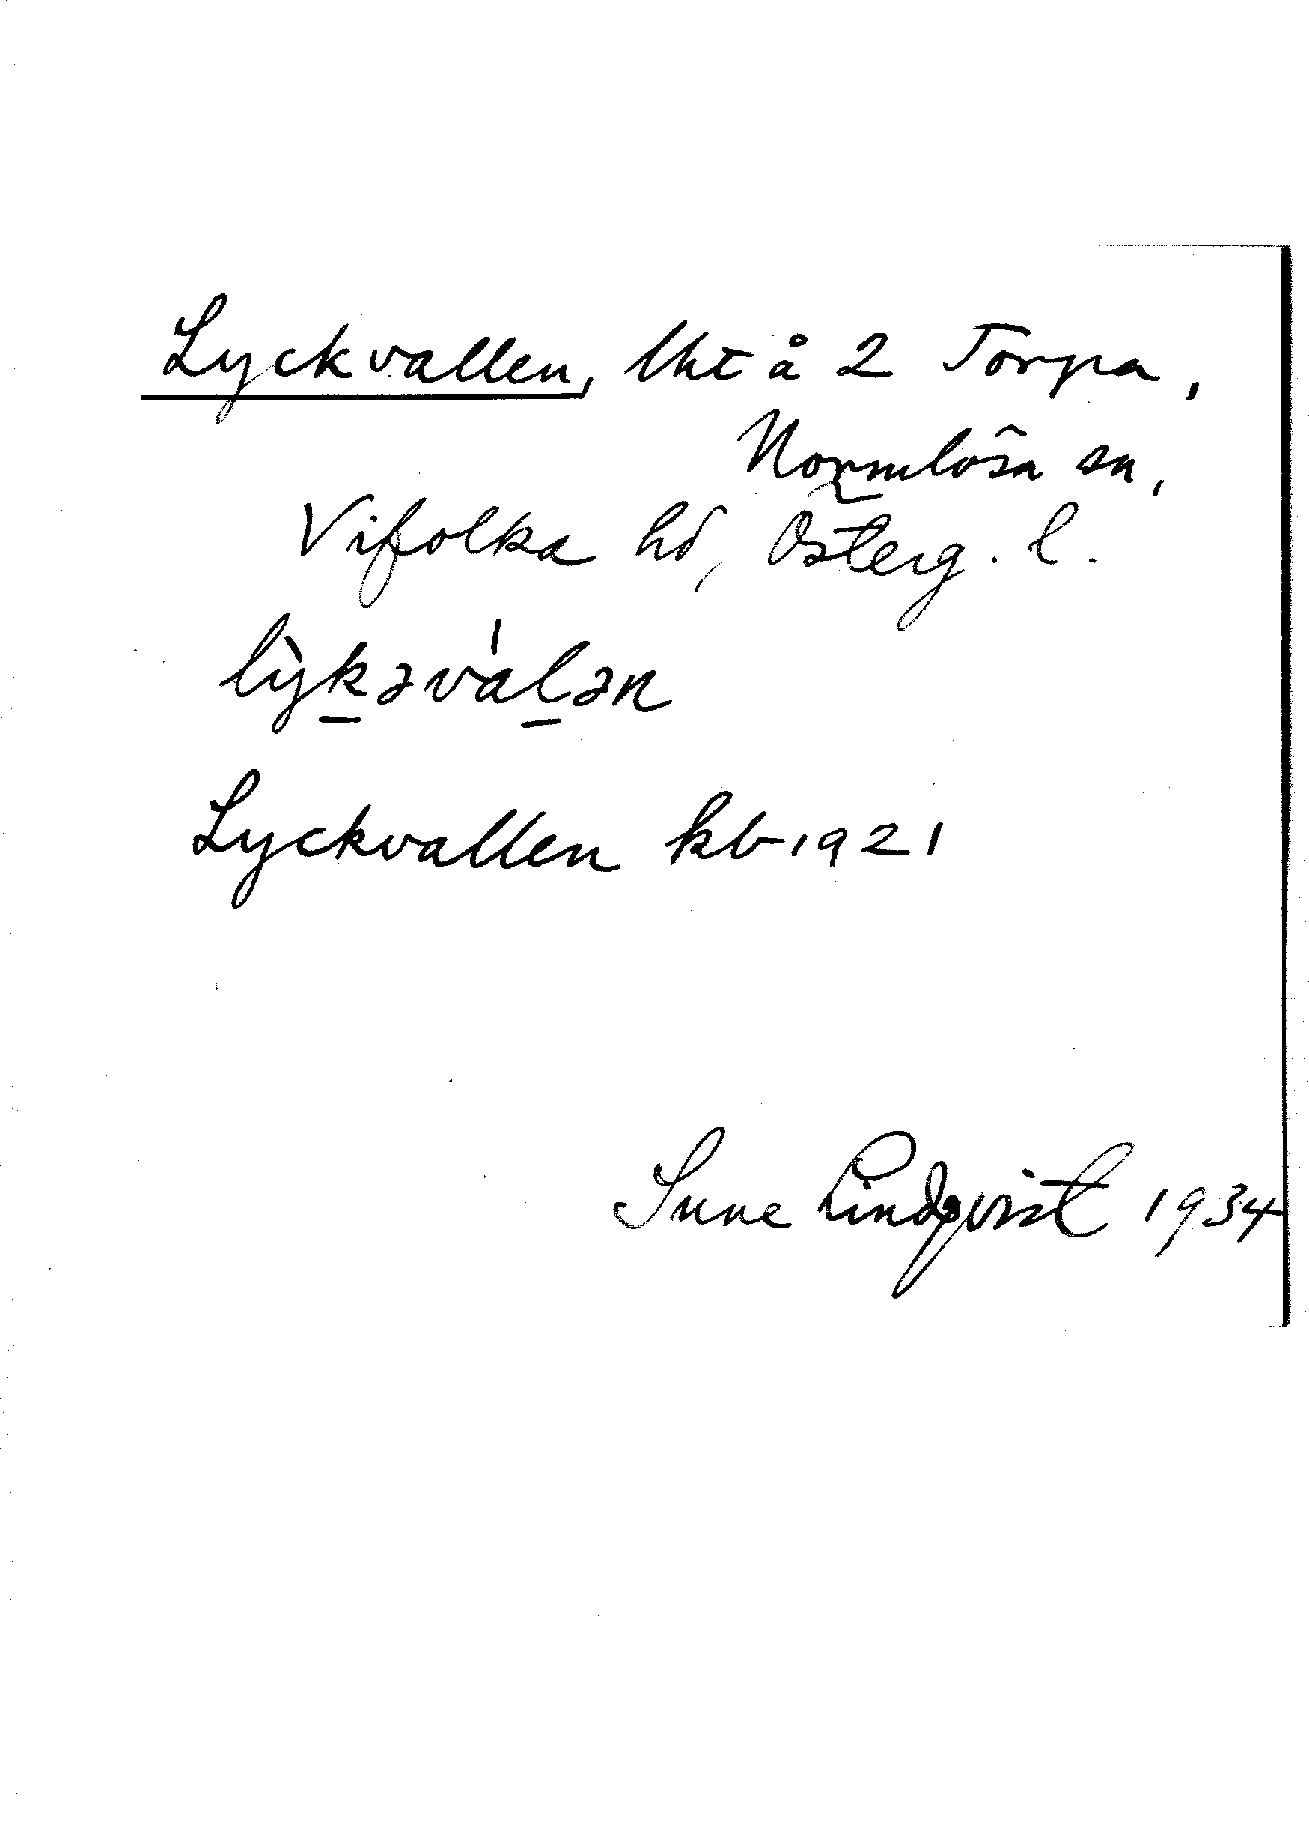 Lyckvallen, lht å 2 Torpa,
Normlösa sn,
Vifolka hd, Österg. l.
lỳk̲əvál̲ən
Lyckvallen kb 1921
Sune Lindqvist 1934